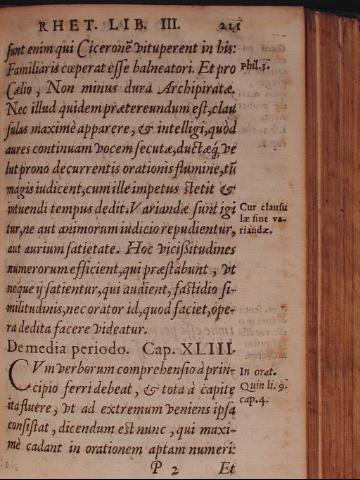 RHET. LIB. III. 211
sunt enim qui Ciceronẽ vituperent in his:
Familiaris cœperat esse balneatori. Et pro
Cælio, Non minus dura Archipiratæ.
Phil. 3.
Nec illud quidem prætereundum est, clau
sulas maximè apparere, & intelligi, quòd
aures continuam vocem secutæ, ductæq́; ve
lut prono decurrentis orationis flumine, tũ
magis iudicent, cum ille impetus stetit &
intuendi tempus dedit. Variandæ sunt igi
tur, ne aut animorum iudicio repudientur,
aut aurium satietate. Hoc vicißitudines
Cur clausu
læ sint va-
riandæ.
numerorum efficient, qui præstabunt, vt
neque ij satientur, qui audient, fastidio si-
militudinis, nec orator id, quod faciet, ope-
ra dedita facere videatur.
De media periodo. Cap. XLIII.
CVm verborum comprehensio à prin-
cipio ferri debeat, & tota à capite
ita fluere, vt ad extremum veniens ipsa
consistat, dicendum est nunc, qui maxi-
mè cadant in orationem aptam numeri:
In orat.
Quin li. 9.
cap. 4.
P 2 Et